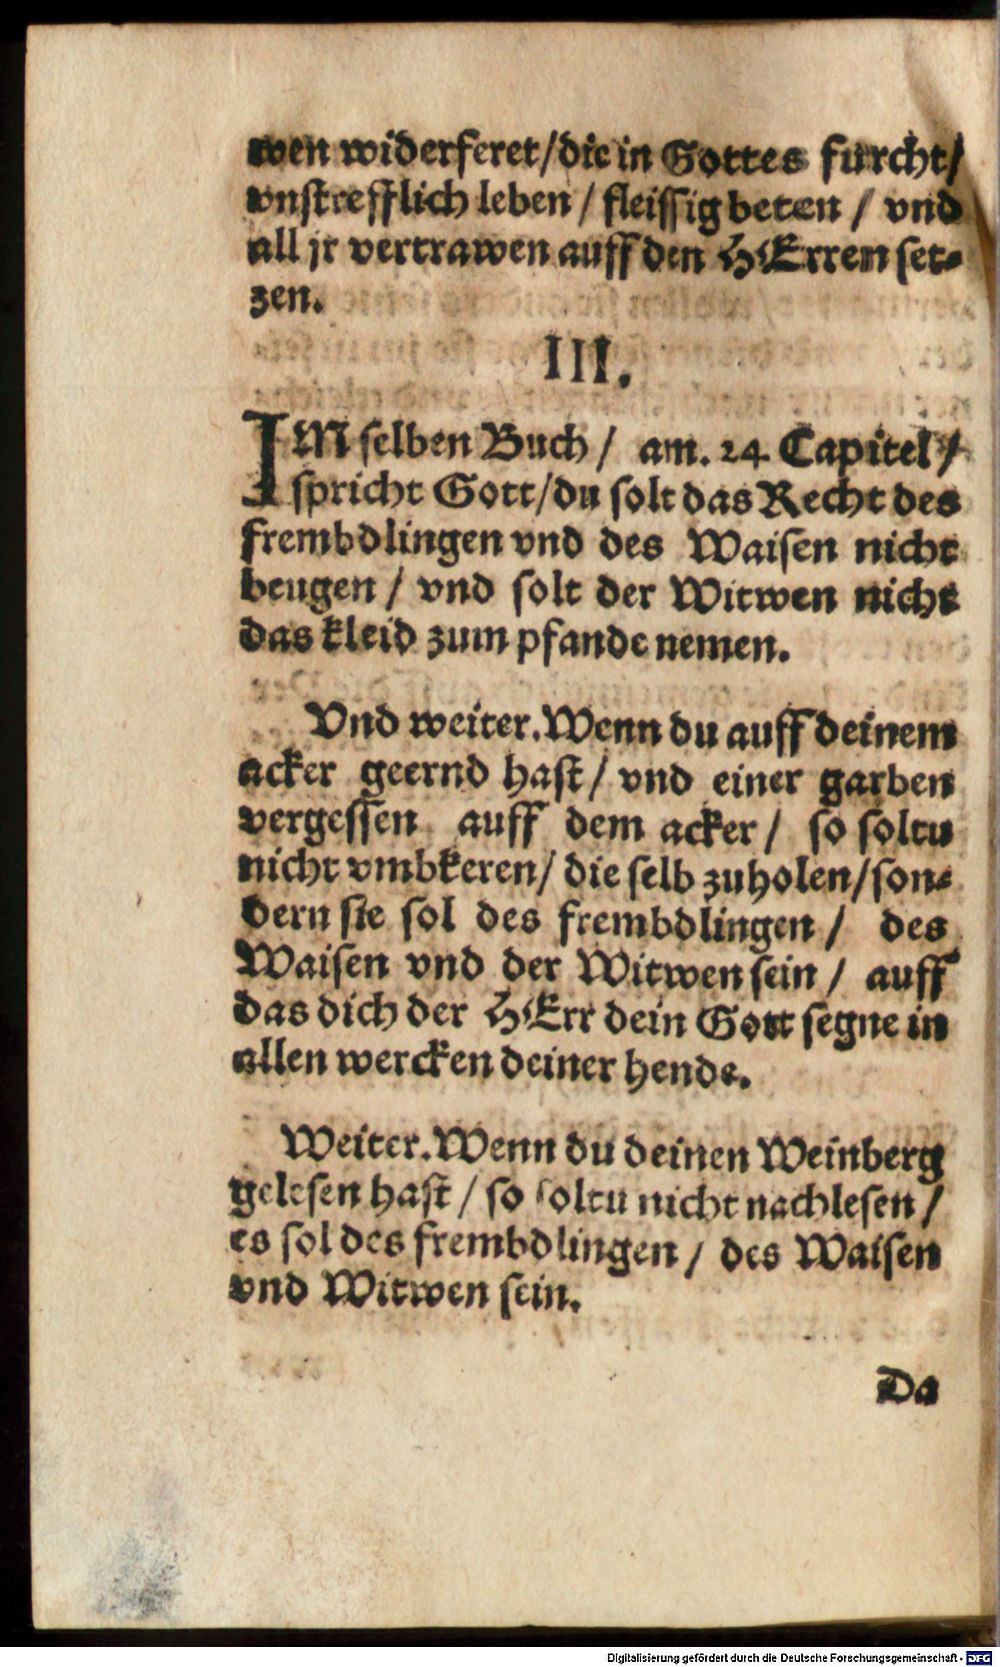 wen widerferet/die in Gottes furcht/
vnstrefflich leben / fleissig beten / vnd
all jr vertrawen auff den HErren set-
zen.
III.
IM selben Buch / am. 24 Capitel /
spricht Gott/du solt das Recht des
frembdlingen vnd des Waisen nicht
beugen / vnd solt der Witwen nicht
das kleid zum pfande nemen.
Vnd weiter. Wenn du auff deinem
acker geernd hast / vnd einer garben
vergessen auff dem acker / so soltu
nicht vmbkeren/ die selb zuholen/son-
dern sie sol des frembdlingen / des
Waisen vnd der Witwen sein / auff
das dich der HErr dein Gott segne in
allen wercken deiner hende.
Weiter. Wenn du deinen Weinberg
gelesen hast / so soltu nicht nachlesen /
es sol des frembdlingen / des Waisen
vnd Witwen sein.
Da
Digitalisierung gefördert durch die Deutsche Forschungsgemeinschaft - DFG